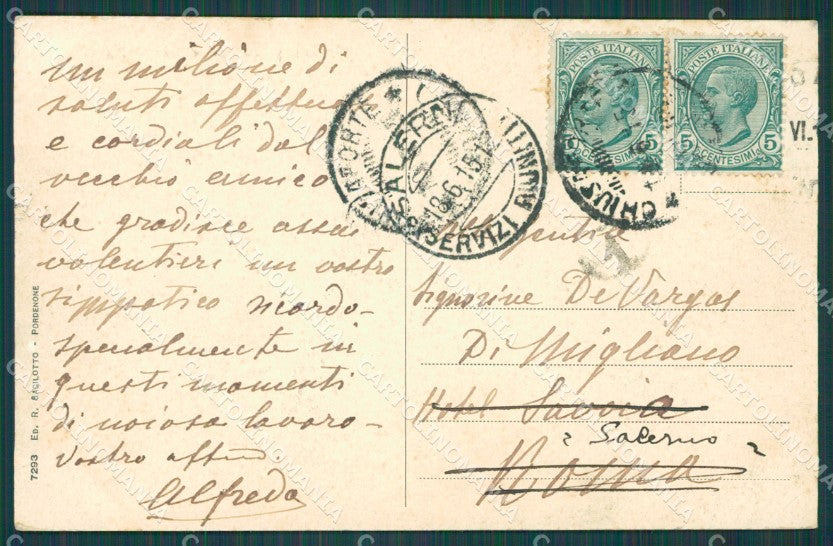 un milione di
saluti affettuosi
e cordiali dal
vecchio amico
che gradisce assai
volentieri un vostro
simpatico ricordo-
specialmente in
questi momenti
di noioso lavoro-
Vostro aff
Alfredo
7293 ED. R. SACILOTTO - PORDENONE
POSTE ITALIANE
5
CENTESIMI 5
POSTE ITALIANE
5 CENTESIMI 5
SALERNO
18.6.15
SERVIZI RIUNITI
CHIUSA
VI.
Gentili
Signorine De Vargas
Di Migliano
Hotel Savoia
Salerno
Roma
CARTOLINOMANIA